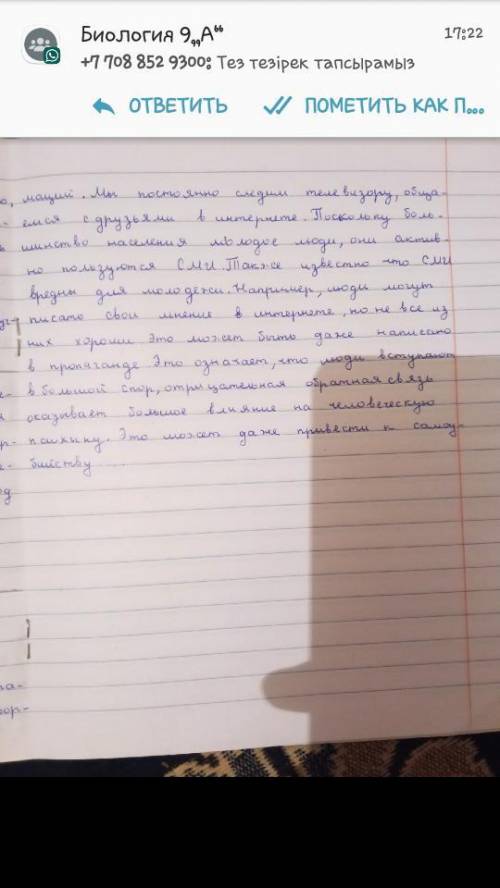 Биология 9„А“
17:22
+7 708 852 9300: Тез тезірек тапсырамыз
ОТВЕТИТЬ
ПОМЕТИТЬ КАК П...
о, маций. Мы постоянно следим телевизору, обща-
- емся с друзьями в интернете. Поскольку боль-
ь шинство населения молодое люди, они актив-
но пользуются СМИ. Также известно что СМИ
вредны для молодежи. Например, люди могут
писать свои мнение в интернете, но не все из
них хороши Это может быть даже написать
в пропаганде Это означает, что люди вступают
е- в большой спор, отрыцательная обратная связь
оказывает большое влияние на человеческую
ор- психику. Это может даже привести к самоу-
е- бийству
ед
та-
фор-